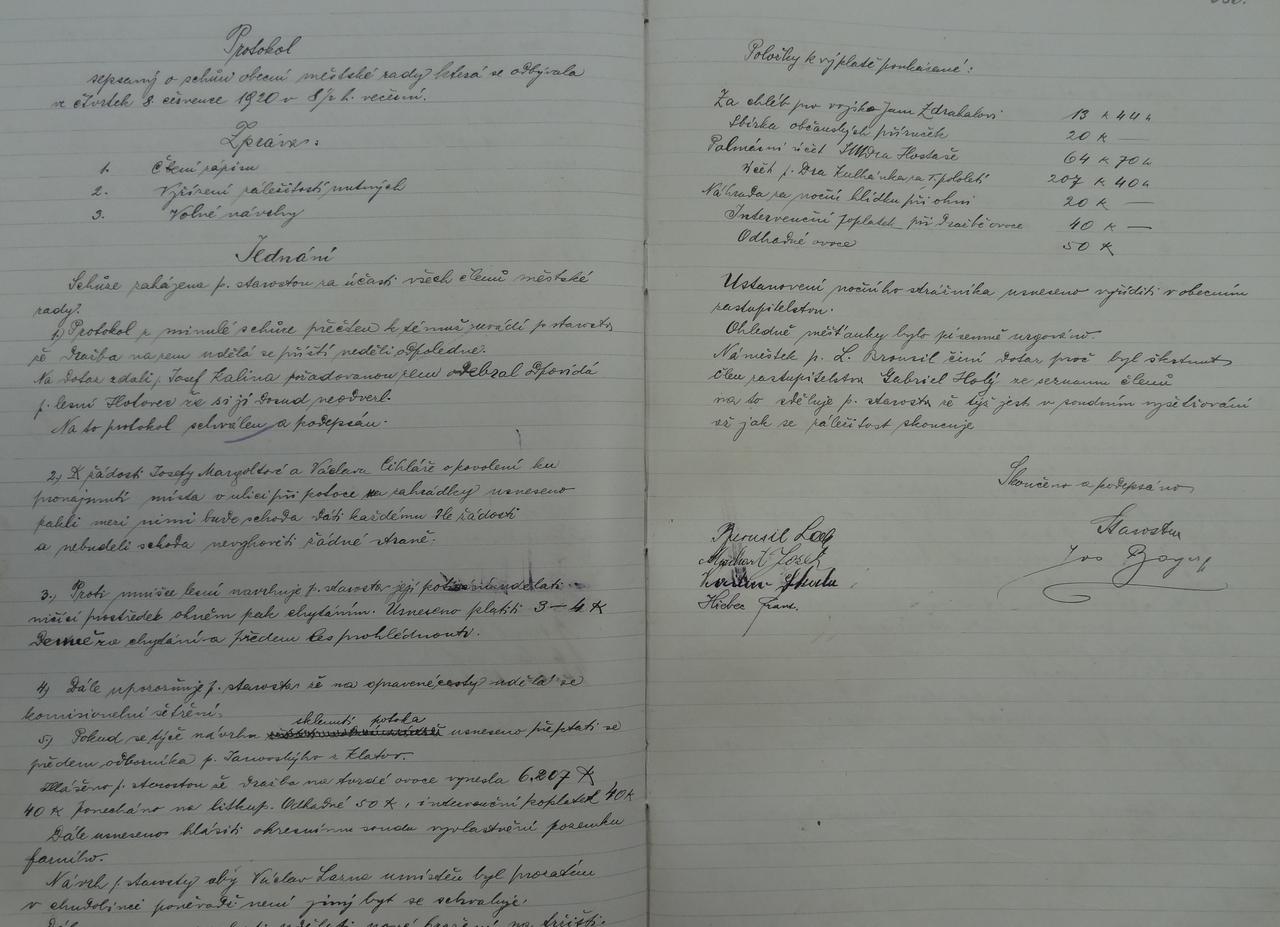 Protokol
sepsaný o schůzi obecní městské rady která se odbývala
ve čtvrtek 8. července 1920 v 8 1/2 h. večerní.
Zpráva:
1. Čtení zápisu
2. Vyřízení záležitostí nutných
3. Volné návrhy
Jednání
Schůze zahájena p. starostou za účasti všech členů městské
rady.
1.) Protokol z minulé schůze přečten k témuž uvádí p. starosta
že dražba na rem udělá se příští neděli odpoledne.
Na dotaz zdali p. Josef Kalina požadovanou zem odebral odpovídá
p. lesní Hotovec že si jí dosud neodvezl.
Na to protokol schválen a podepsán.
2.) K žádosti Josefy Margoltové a Václava Cihláře o povolení ku
pronajmutí místa v ulici při potoce na zahrádky usneseno
pakli mezi nimi bude schoda dáti každému dle žádosti
a nebudeli schoda nevyhověti žádné straně.
3.) Proti mnišce lesní navrhuje p. starosta její udělati
ničící prostředek ohněm pak chytáním. Usneseno platiti 3 – 4 K
Denně za chytání a předem les prohlédnouti.
4) Dále upozorňuje p. starosta že na opravené cesty udělá se
komisionelní šetření.
sklenutí potoka
5) Pokud se týče návrhu usneseno přeptati se
předem odborníka p. Janovského z Klatov.
Hlášeno p. starostou že dražba na tvrdé ovoce vynesla 6.207 K
40 K ponecháno na litkup. Odhadné 50 K, intervenční poplatek 40 K
Dále usneseno hlásiti okresnímu soudu vyvlastnění pozemku
farního.
Návrh p. starosty aby Václav Lazna umístěn byl prozatím
v chudobinci poněvadž není jiný byt se schvaluje.
nové na tržišti.
Položky k výplatě poukázané:
Za chléb pro vojsko Janu Zdrahalovi 13 K 44 h
Sbírka občanských příruček 20 K —
Palmární účet JUDra Hostaše 64 K 70 h
Účet p. Dra Kulhánka za I. pololetí 207 K 40 h
Náhrada za noční hlídku při ohni 20 K —
Intervenční poplatek při dražbě ovoce 40 K —
Odhadné ovoce 50 K
Ustanovení nočního strážníka usneseno vyříditi v obecním
zastupitelstvu.
Ohledně měšťanky bylo písemně urgováno.
Náměstek p. L. Brousil činí dotaz proč byl škrtnut
člen zastupitelstva Gabriel Holý ze seznamu členů
na to sděluje p. starosta že týž jest v soudním vyšetřování
až jak se záležitost skoncuje
Skončeno a podepsáno
Brousil Leop
Josef
Starosta
Hieber Franz.